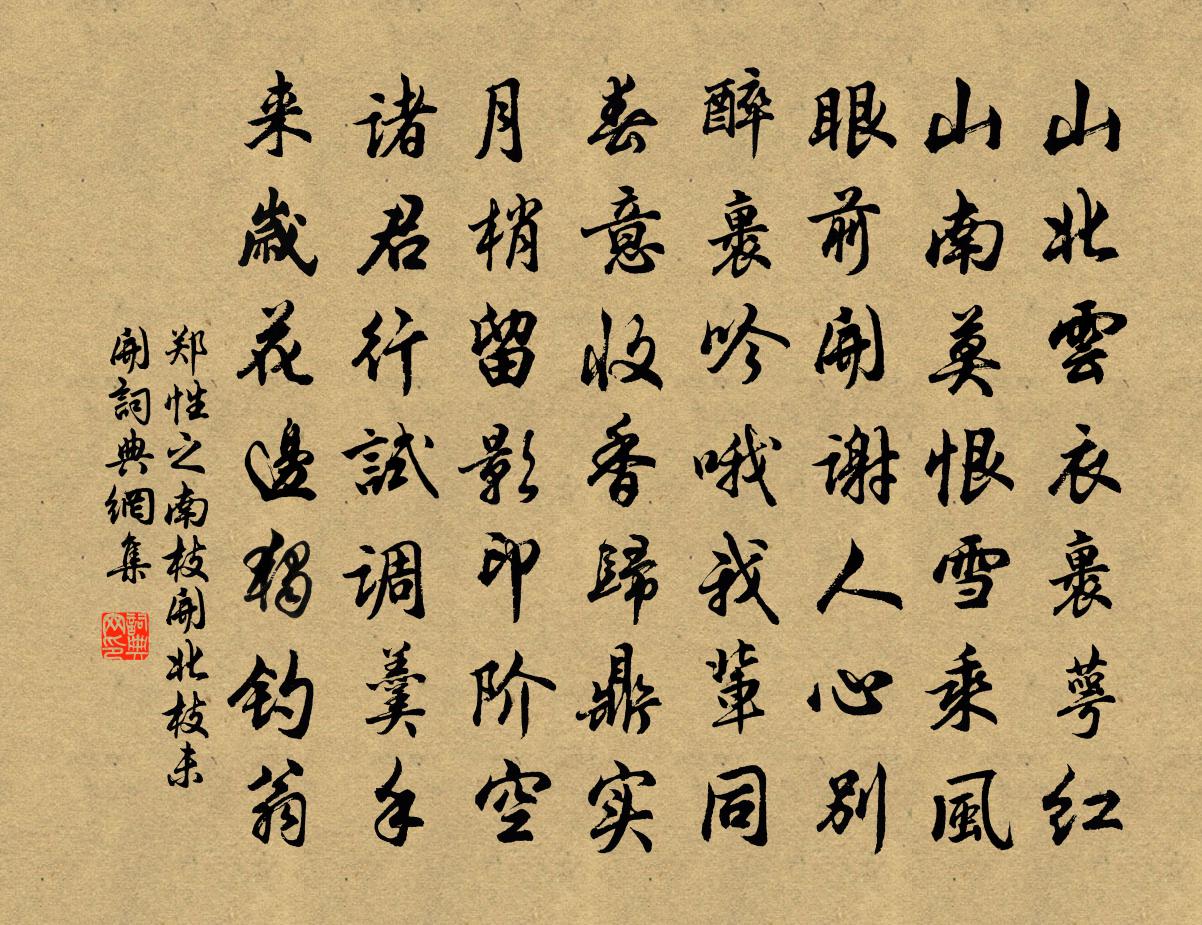 山北雲衣裹萼红
山南莫恨雪乘風
眼前開谢人心别
醉裹吟哦我輩同
春意收香歸鼎实
月梢留影印阶空
诸君行試调羹手
来歲花邊獨钓翁
郑性之南枝開北枝未
開詞典網集
詞典网印